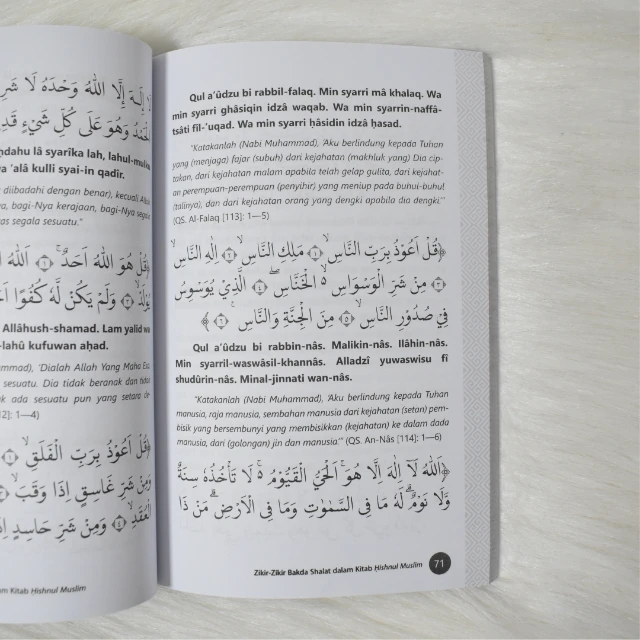 إِلَهَ إِلَّا اللهُ وَحْدَهُ لَا
وَهُوَ عَلَى كُلِّ شَيْءٍ
lâ syarîka lah, lahul-mulku
wa 'alâ kulli syai-in qadîr.
diibadahi dengan benar), kecuali
bagi-Nya kerajaan, bagi-Nya segala
segala sesuatu."
قُلْ هُوَ اللهُ اَحَدٌۚ ۝١ اَللهُ
وَلَمْ يَكُنْ لَّهٗ كُفُوًا
Allâhush-shamad. Lam yalid wa
kufuwan ahad.
'Dialah Allah Yang Maha Esa.
sesuatu. Dia tidak beranak dan
ada sesuatu pun yang setara
1—4)
قُلْ اَعُوْذُ بِرَبِّ الْفَلَقِۙ ۝١
وَمِنْ شَرِّ غَاسِقٍ اِذَا وَقَبَۙ ۝٣
الْعُقَدِۙ ۝٤ وَمِنْ شَرِّ حَاسِدٍ اِذَا
Kitab Ḥishnul Muslim
Qul a'ûdzu bi rabbil-falaq. Min syarri mâ khalaq. Wa
min syarri ghâsiqin idzâ waqab. Wa min syarrin-naffâ-
tsâti fil-'uqad. Wa min syarri ḥâsidin idzâ ḥasad.
"Katakanlah (Nabi Muhammad), 'Aku berlindung kepada Tuhan
yang (menjaga) fajar (subuh) dari kejahatan (makhluk yang) Dia cip-
takan, dari kejahatan malam apabila telah gelap gulita, dari kejahat-
an perempuan-perempuan (penyihir) yang meniup pada buhul-buhul
(talinya), dan dari kejahatan orang yang dengki apabila dia dengki.'"
(QS. Al-Falaq [113]: 1—5)
﴿قُلْ اَعُوْذُ بِرَبِّ النَّاسِۙ ۝١ مَلِكِ النَّاسِۙ ۝٢ اِلٰهِ النَّاسِۙ
۝٣ مِنْ شَرِّ الْوَسْوَاسِ ەۙ الْخَنَّاسِۖ ۝٤ الَّذِيْ يُوَسْوِسُ
فِيْ صُدُوْرِ النَّاسِۙ ۝٥ مِنَ الْجِنَّةِ وَالنَّاسِ ۝٦﴾
Qul a'ûdzu bi rabbin-nâs. Malikin-nâs. Ilâhin-nâs.
Min syarril-waswâsil-khannâs. Alladzî yuwaswisu fî
shudûrin-nâs. Minal-jinnati wan-nâs.
"Katakanlah (Nabi Muhammad), 'Aku berlindung kepada Tuhan
manusia, raja manusia, sembahan manusia dari kejahatan (setan) pem-
bisik yang bersembunyi yang membisikkan (kejahatan) ke dalam dada
manusia, dari (golongan) jin dan manusia.'" (QS. An-Nâs [114]: 1—6)
﴿اَللهُ لَآ اِلٰهَ اِلَّا هُوَۚ اَلْحَيُّ الْقَيُّوْمُ ەۚ لَا تَأْخُذُهٗ سِنَةٌ
وَّلَا نَوْمٌۗ لَهٗ مَا فِى السَّمٰوٰتِ وَمَا فِى الْاَرْضِۗ مَنْ ذَا
Zikir-Zikir Bakda Shalat dalam Kitab Ḥishnul Muslim 71